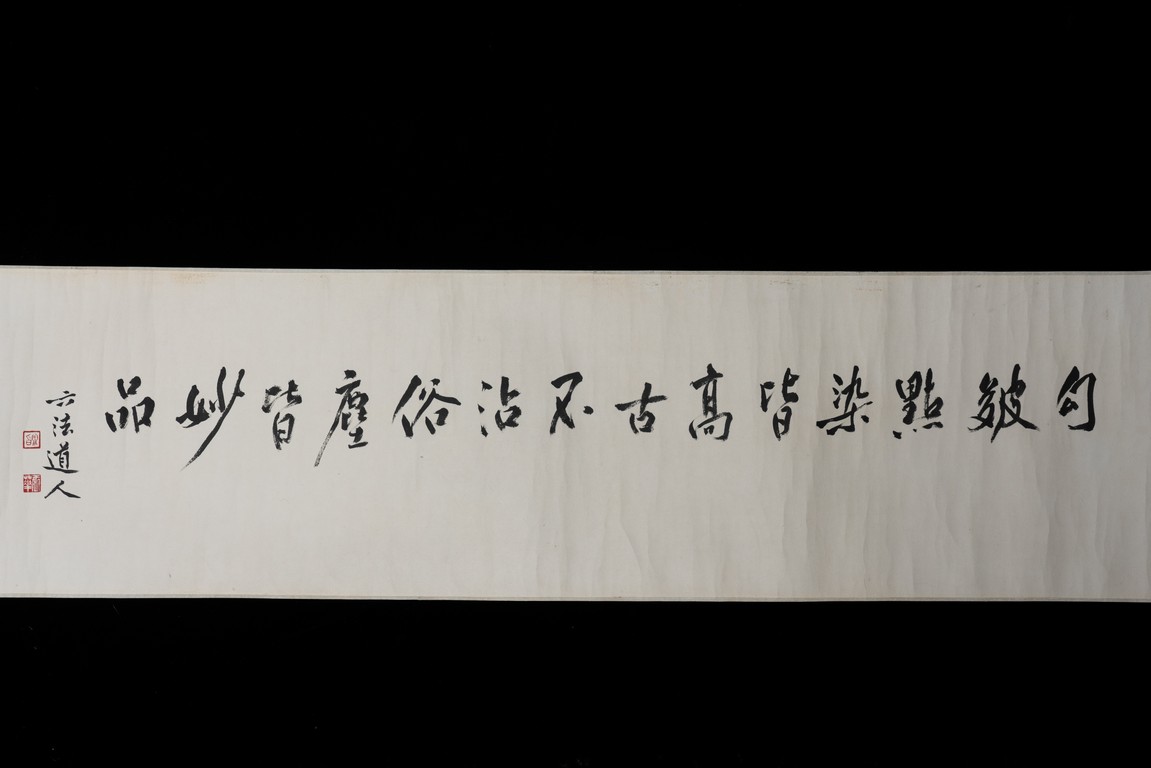 勾皴點染皆高古不沾俗塵皆妙品
六法道人